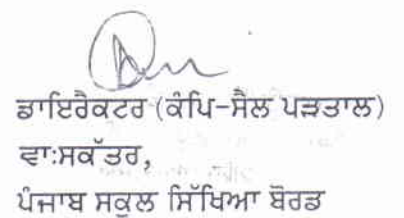 ਡਾਇਰੈਕਟਰ (ਕੰਪਿ-ਸੈਲ ਪੜਤਾਲ)
ਵਾ:ਸਕੱਤਰ,
ਪੰਜਾਬ ਸਕੂਲ ਸਿੱਖਿਆ ਬੋਰਡ